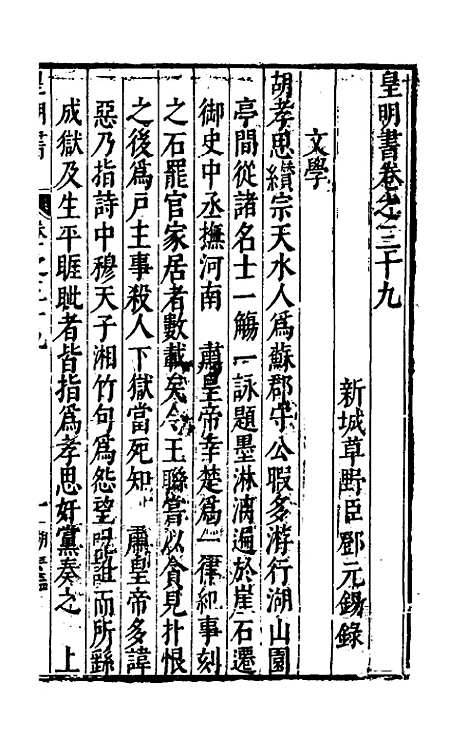 皇明書卷之三十九
新城草野臣鄧元錫錄
文學
胡孝思纘宗天水人爲蘇郡守公暇多游行湖山園
亭間從諸名士一觴一詠題墨淋漓遍於崖石遷
御史中丞撫河南 肅皇帝幸楚爲一律紀事刻
之石罷官家居者數載矣令王聯嘗以貪見扑恨
之後爲戶主事殺人下獄當死知 肅皇帝多諱
惡乃指詩中穆天子湘竹句爲怨望呪詛而所繇
成獄及生平睚眦者皆指爲孝思奸黨奏之 上
皇明書 卷之三十九 一